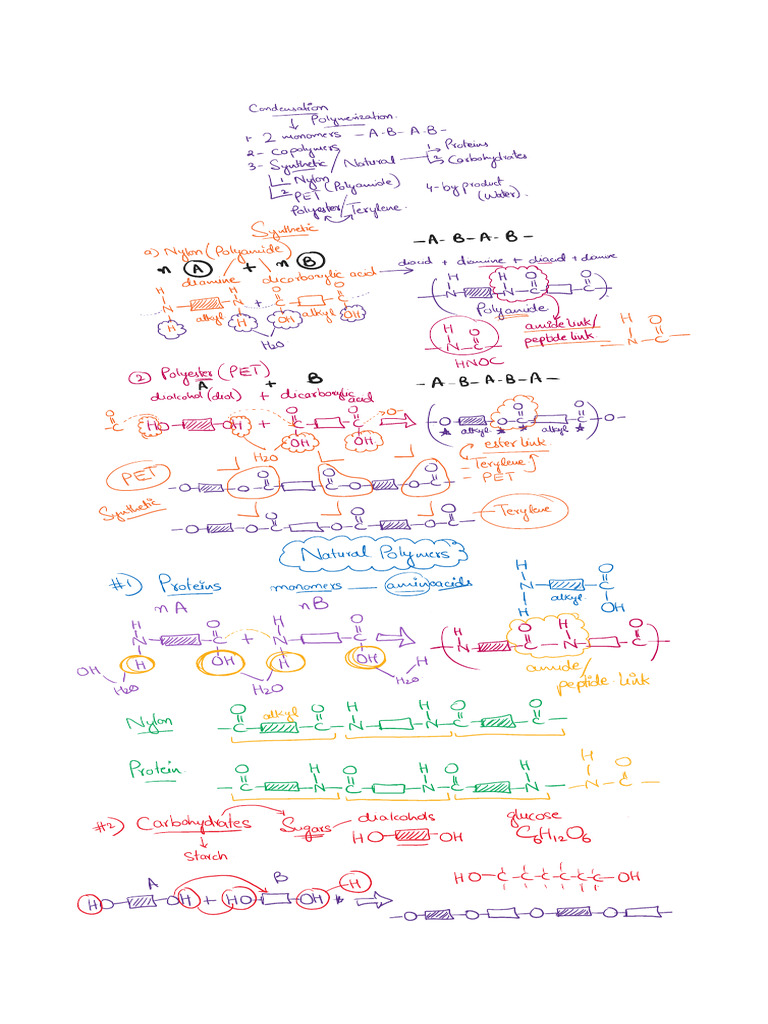 Condensation
Polymerization.
1- 2 monomers -A-B-A-B-
2- Copolymers
3- Synthetic / Natural
1 Nylon
2 PET (Polyamide)
Polyester/Terylene.
1 Proteins
2 Carbohydrates
4-by product
(water).
Synthetic
a) Nylon (Polyamide)
n A + n B
diamine dicarboxylic acid
-A-B-A-B-
diacid + diamine + diacid + diamine
H H O O
N N + C C
H alkyl H OH alkyl OH
H2O
H H O O
N N C C
Polyamide
H O
N-C
HNOC
amide link/
peptide link
H O
N-C
2) Polyester (PET)
A + B
dialcohol (diol) + dicarboxylic
acid
-A-B-A-B-A-
O
C HO OH + C C O
OH OH
H2O
O O
O O C C O-
alkyl alkyl
ester link
- Terylene
- PET
PET
O O O
-O O-C C-O O-C-
Synthetic
O O O
-O O-C C-O O-C-
Terylene
Natural Polymers
#1) Proteins monomers aminoacids
H O
N C
H alkyl OH
nA nB
H O H O
N C + N C
H OH H OH
OH H2O H2O H2O H
H O H O
N C-N C
amide/
peptide link
Nylon
O alkyl O H H O O
-C C-N N-C C-
Protein
O H O H O H
-C N-C N-C N-
H O
-N-C-
#2) Carbohydrates Sugars - dialcohols
HO OH
glucose
C6H12O6
Starch
A B
HO OH + HO OH H
HO-C-C-C-C-C-C-OH
-O O O O-